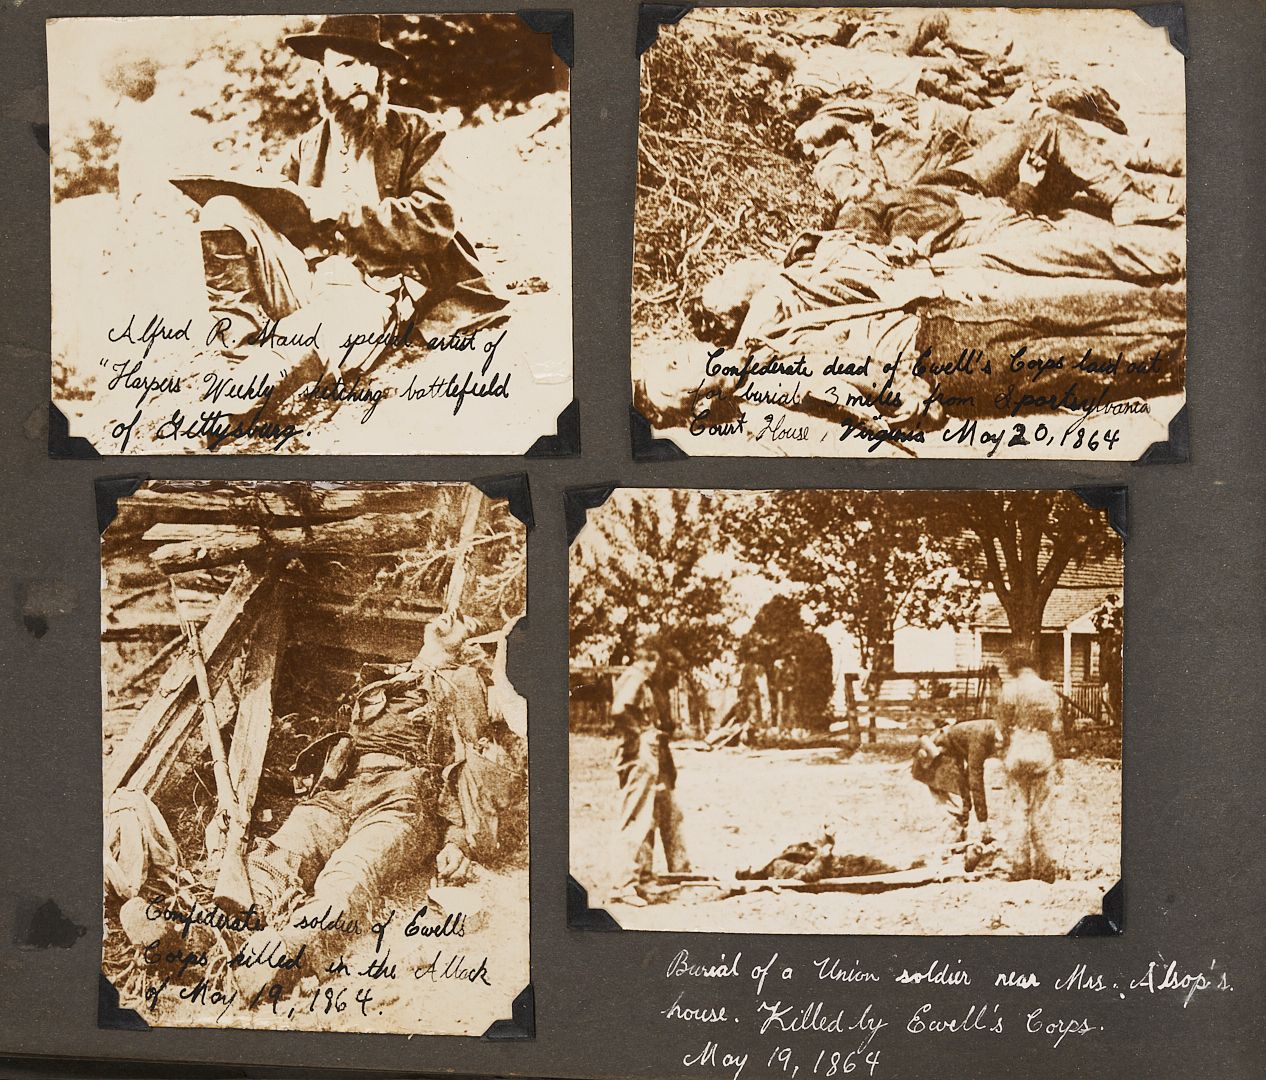 Alfred R. Waud special artist of
"Harpers Weekly" sketching battlefield
of Gettysburg.
Confederate dead of Ewell's Corps laid out
for burial 3 miles from Spottsylvania
Court House, Virginia May 20, 1864
Confederate soldier of Ewell's
Corps killed in the Attack
of May 19, 1864.
Burial of a Union soldier near Mrs. Alsop's.
house. Killed by Ewell's Corps.
May 19, 1864